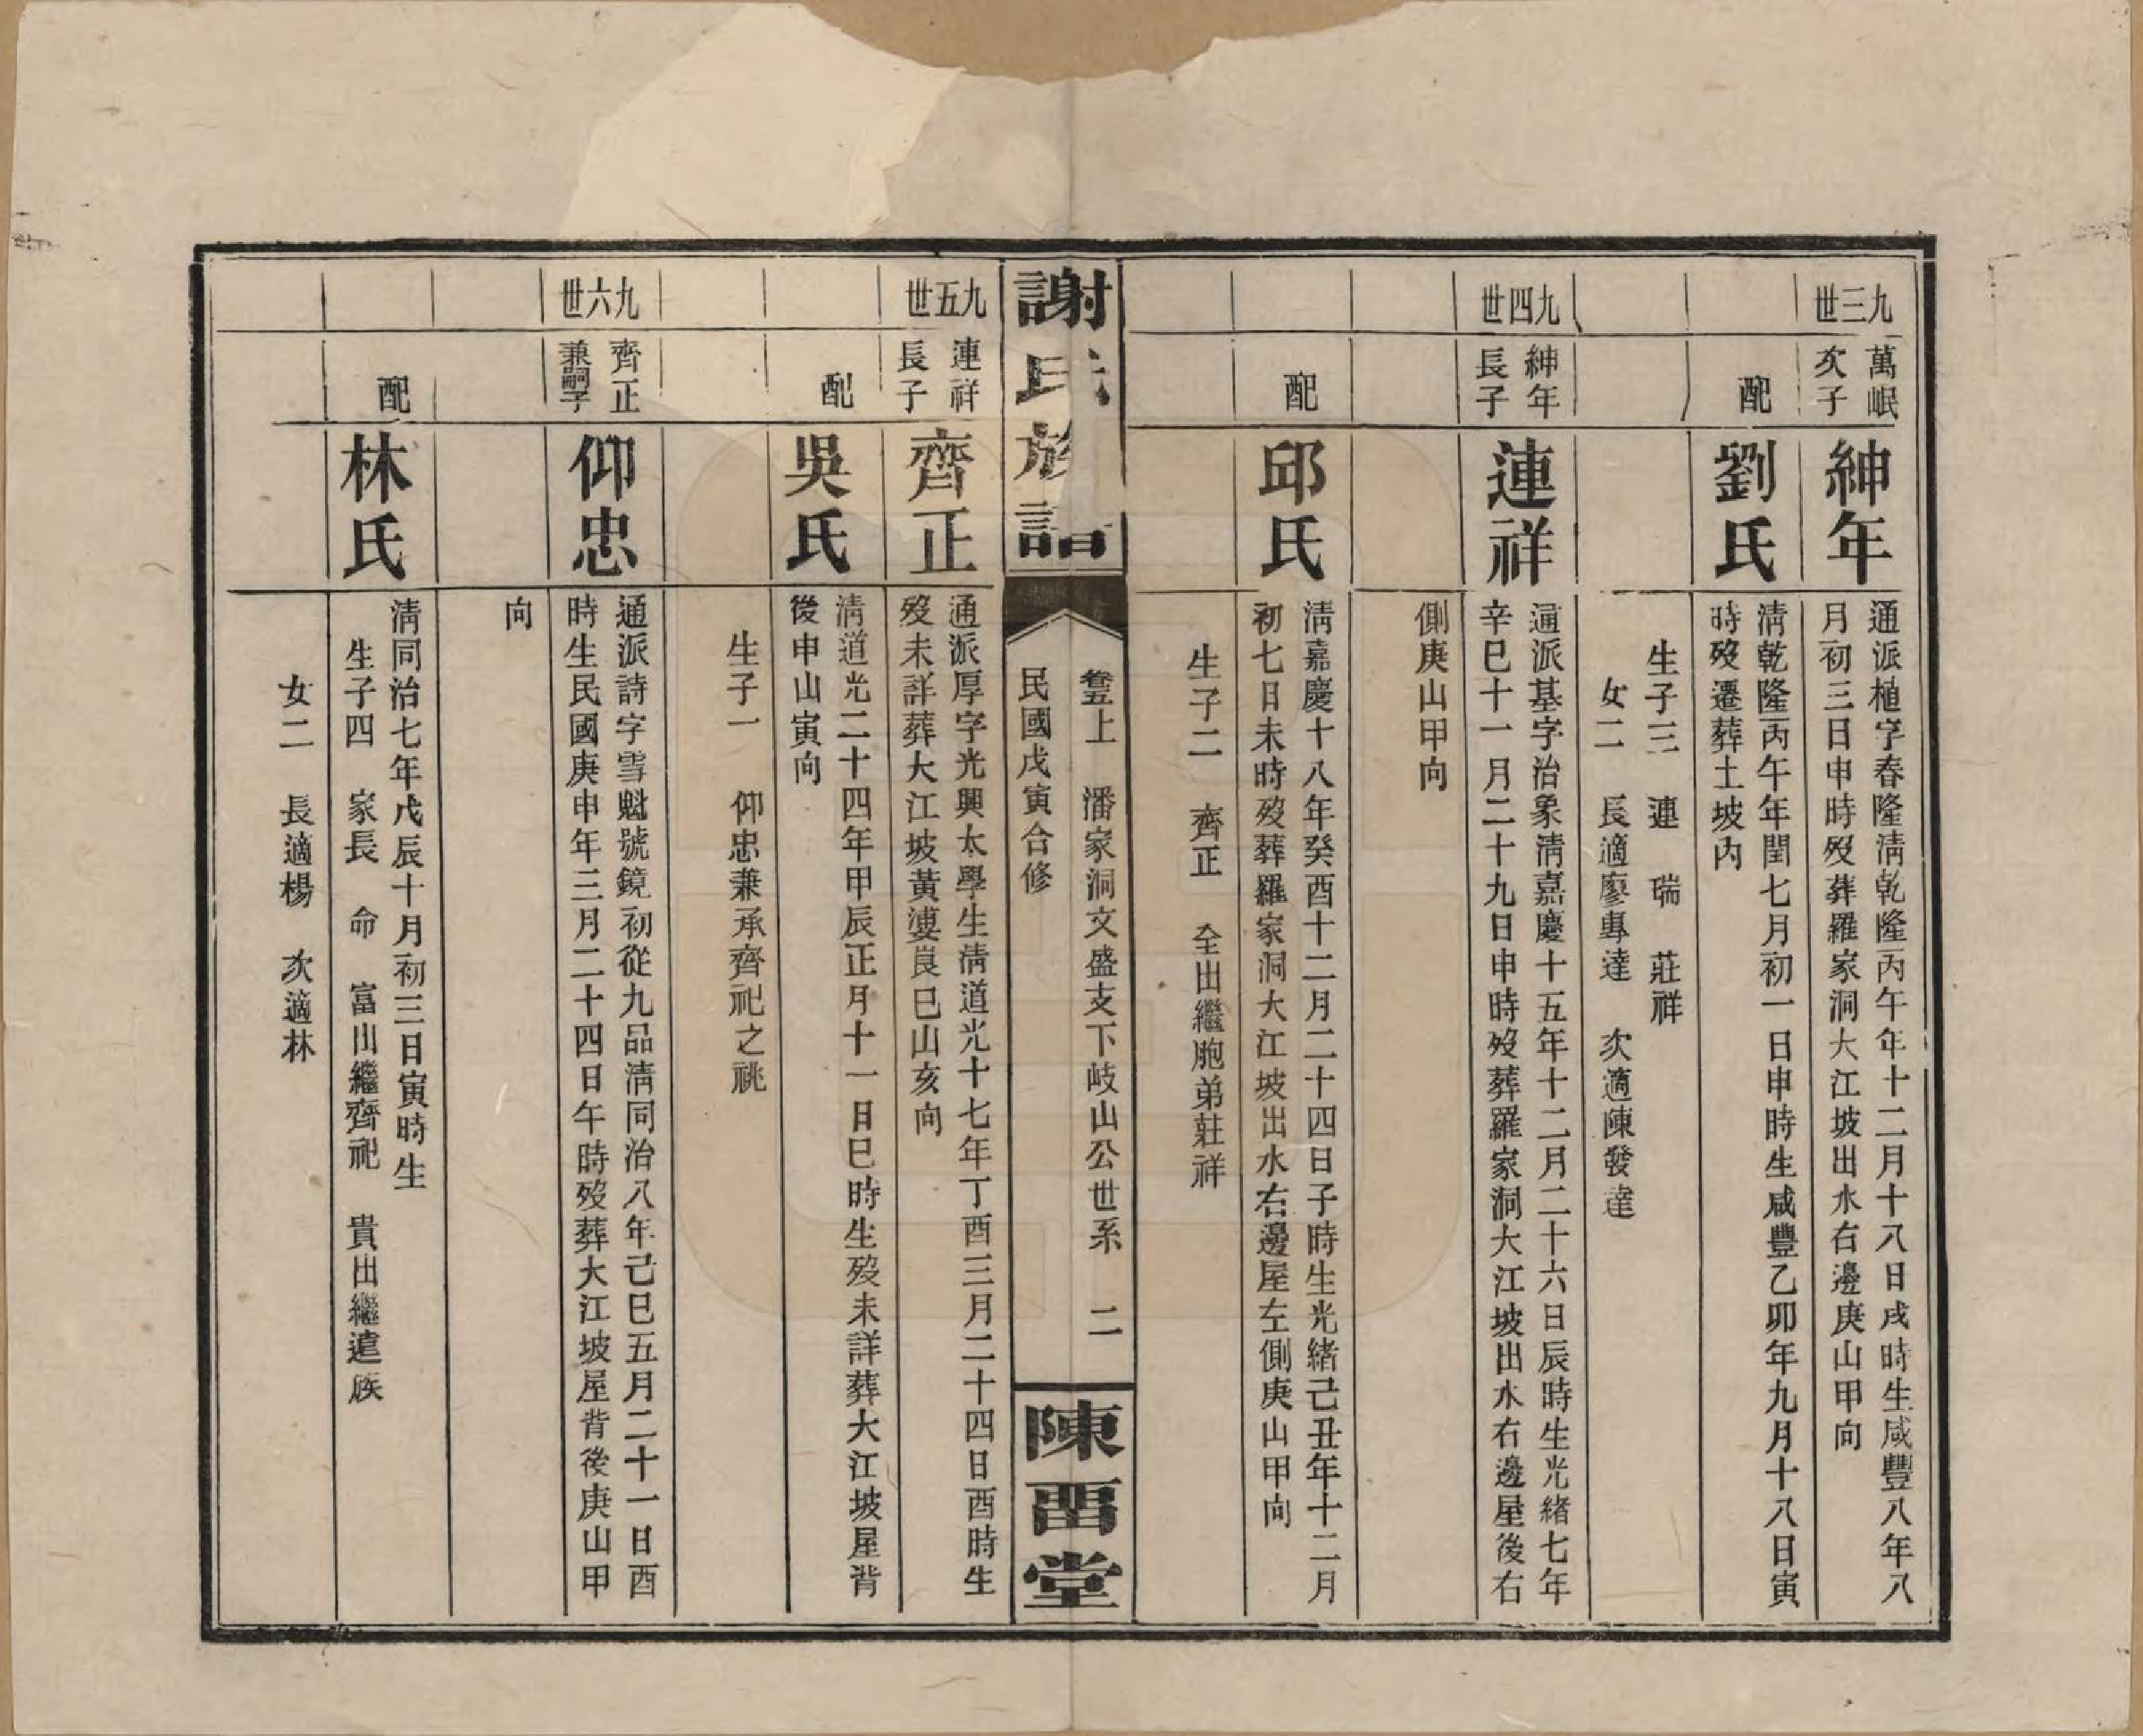 九三世
萬岷
次子
紳年
通派植字春隆淸乾隆丙午年十二月十八日戌時生咸豐八年八
月初三日申時歿葬羅家洞大江坡出水右邊庚山甲向
配
劉氏
淸乾隆丙午年閏七月初一日申時生咸豐乙卯年九月十八日寅
時歿遷葬土坡內
生子三 連 瑞 莊祥
女二 長適廖專達 次適陳發達
九四世
紳年
長子
連祥
通派基字治象淸嘉慶十五年十二月二十六日辰時生光緒七年
辛巳十一月二十九日申時歿葬羅家洞大江坡出水右邊屋後右
側庚山甲向
配
邱氏
淸嘉慶十八年癸酉十二月二十四日子時生光緒己丑年十二月
初七日未時歿葬羅家洞大江坡出水右邊屋左側庚山甲向
生子二 齊正 全出繼胞弟莊祥
謝氏族譜
卷五上 潘家洞文盛支下岐山公世系 二
民國戊寅合修
陳畱堂
九五世
連祥
長子
齊正
通派厚字光興太學生淸道光十七年丁酉三月二十四日酉時生
歿未詳葬大江坡黃𣻎崀巳山亥向
配
吳氏
淸道光二十四年甲辰正月十一日巳時生歿未詳葬大江坡屋背
後申山寅向
生子一 仰忠兼承齊祀之祧
九六世
齊正
兼嗣子
仰忠
通派詩字雪魁號鏡初從九品淸同治八年己巳五月二十一日酉
時生民國庚申年三月二十四日午時歿葬大江坡屋背後庚山甲
向
配
林氏
淸同治七年戊辰十月初三日寅時生
生子四 家長 命 富出繼齊祀 貴出繼遣族
女二 長適楊 次適林